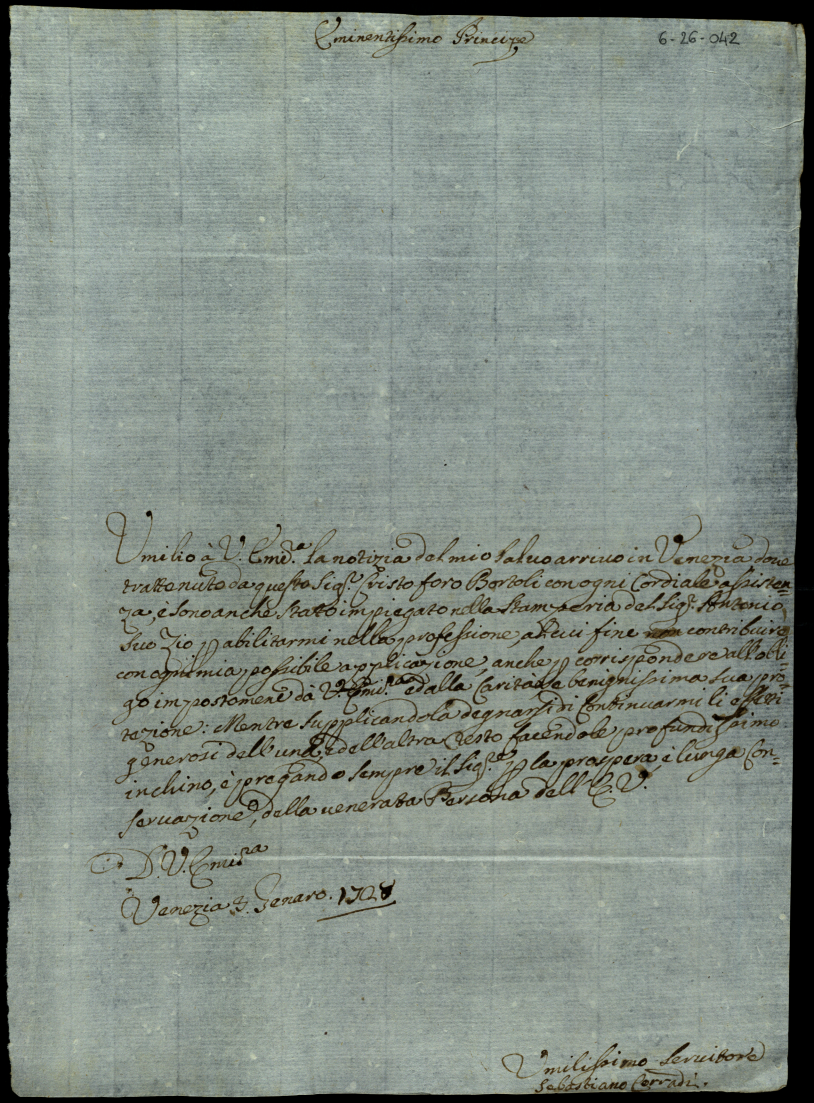 Eminentissimo Principe
6-26-042
Umilio à V. Emza. la notizia del mio salvo arrivo in Venezia dove
trattenuto da questo Sigr. Cristoforo Bortoli con ogni Cordiale assisten=
za, è sono anche stato impiegato nella Stamperia del Sigr. Antonio
suo Zio p abilitarmi nella professione, a cui fine contribuirò
con ogni mia possibile applicazione, anche p corrispondere all'obli=
go impostomene dà V. Emza. e dalla Carità, e benignissima sua pro=
tezione: Mentre supplicandola degnarsi di Continuarmi li effetti
generosi dell'una, e dell'altra Resto facendole profundissimo
inchino, è pregando sempre il Sigre. p la prospera è lunga Con=
servazione, della venerata Persona dell'E. V.
D. V. Emiza
Venezia Genaro. 1728
Umilissimo Servitore
Sebastiano Corradi.